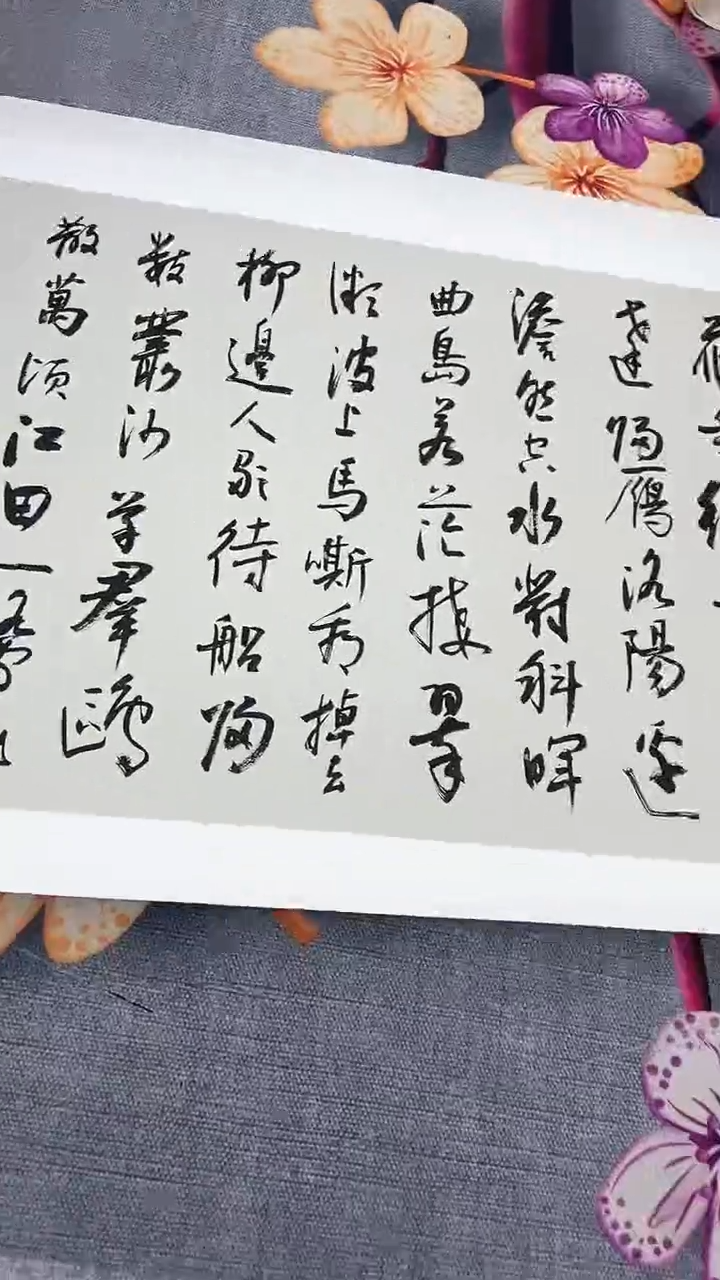 達歸鴈洛陽邊
澹然空水對斜暉
曲島蒼茫接翠
微波上馬嘶看棹去
柳邊人歇待船歸
數叢沙草羣鷗
散萬頃江田一鷺